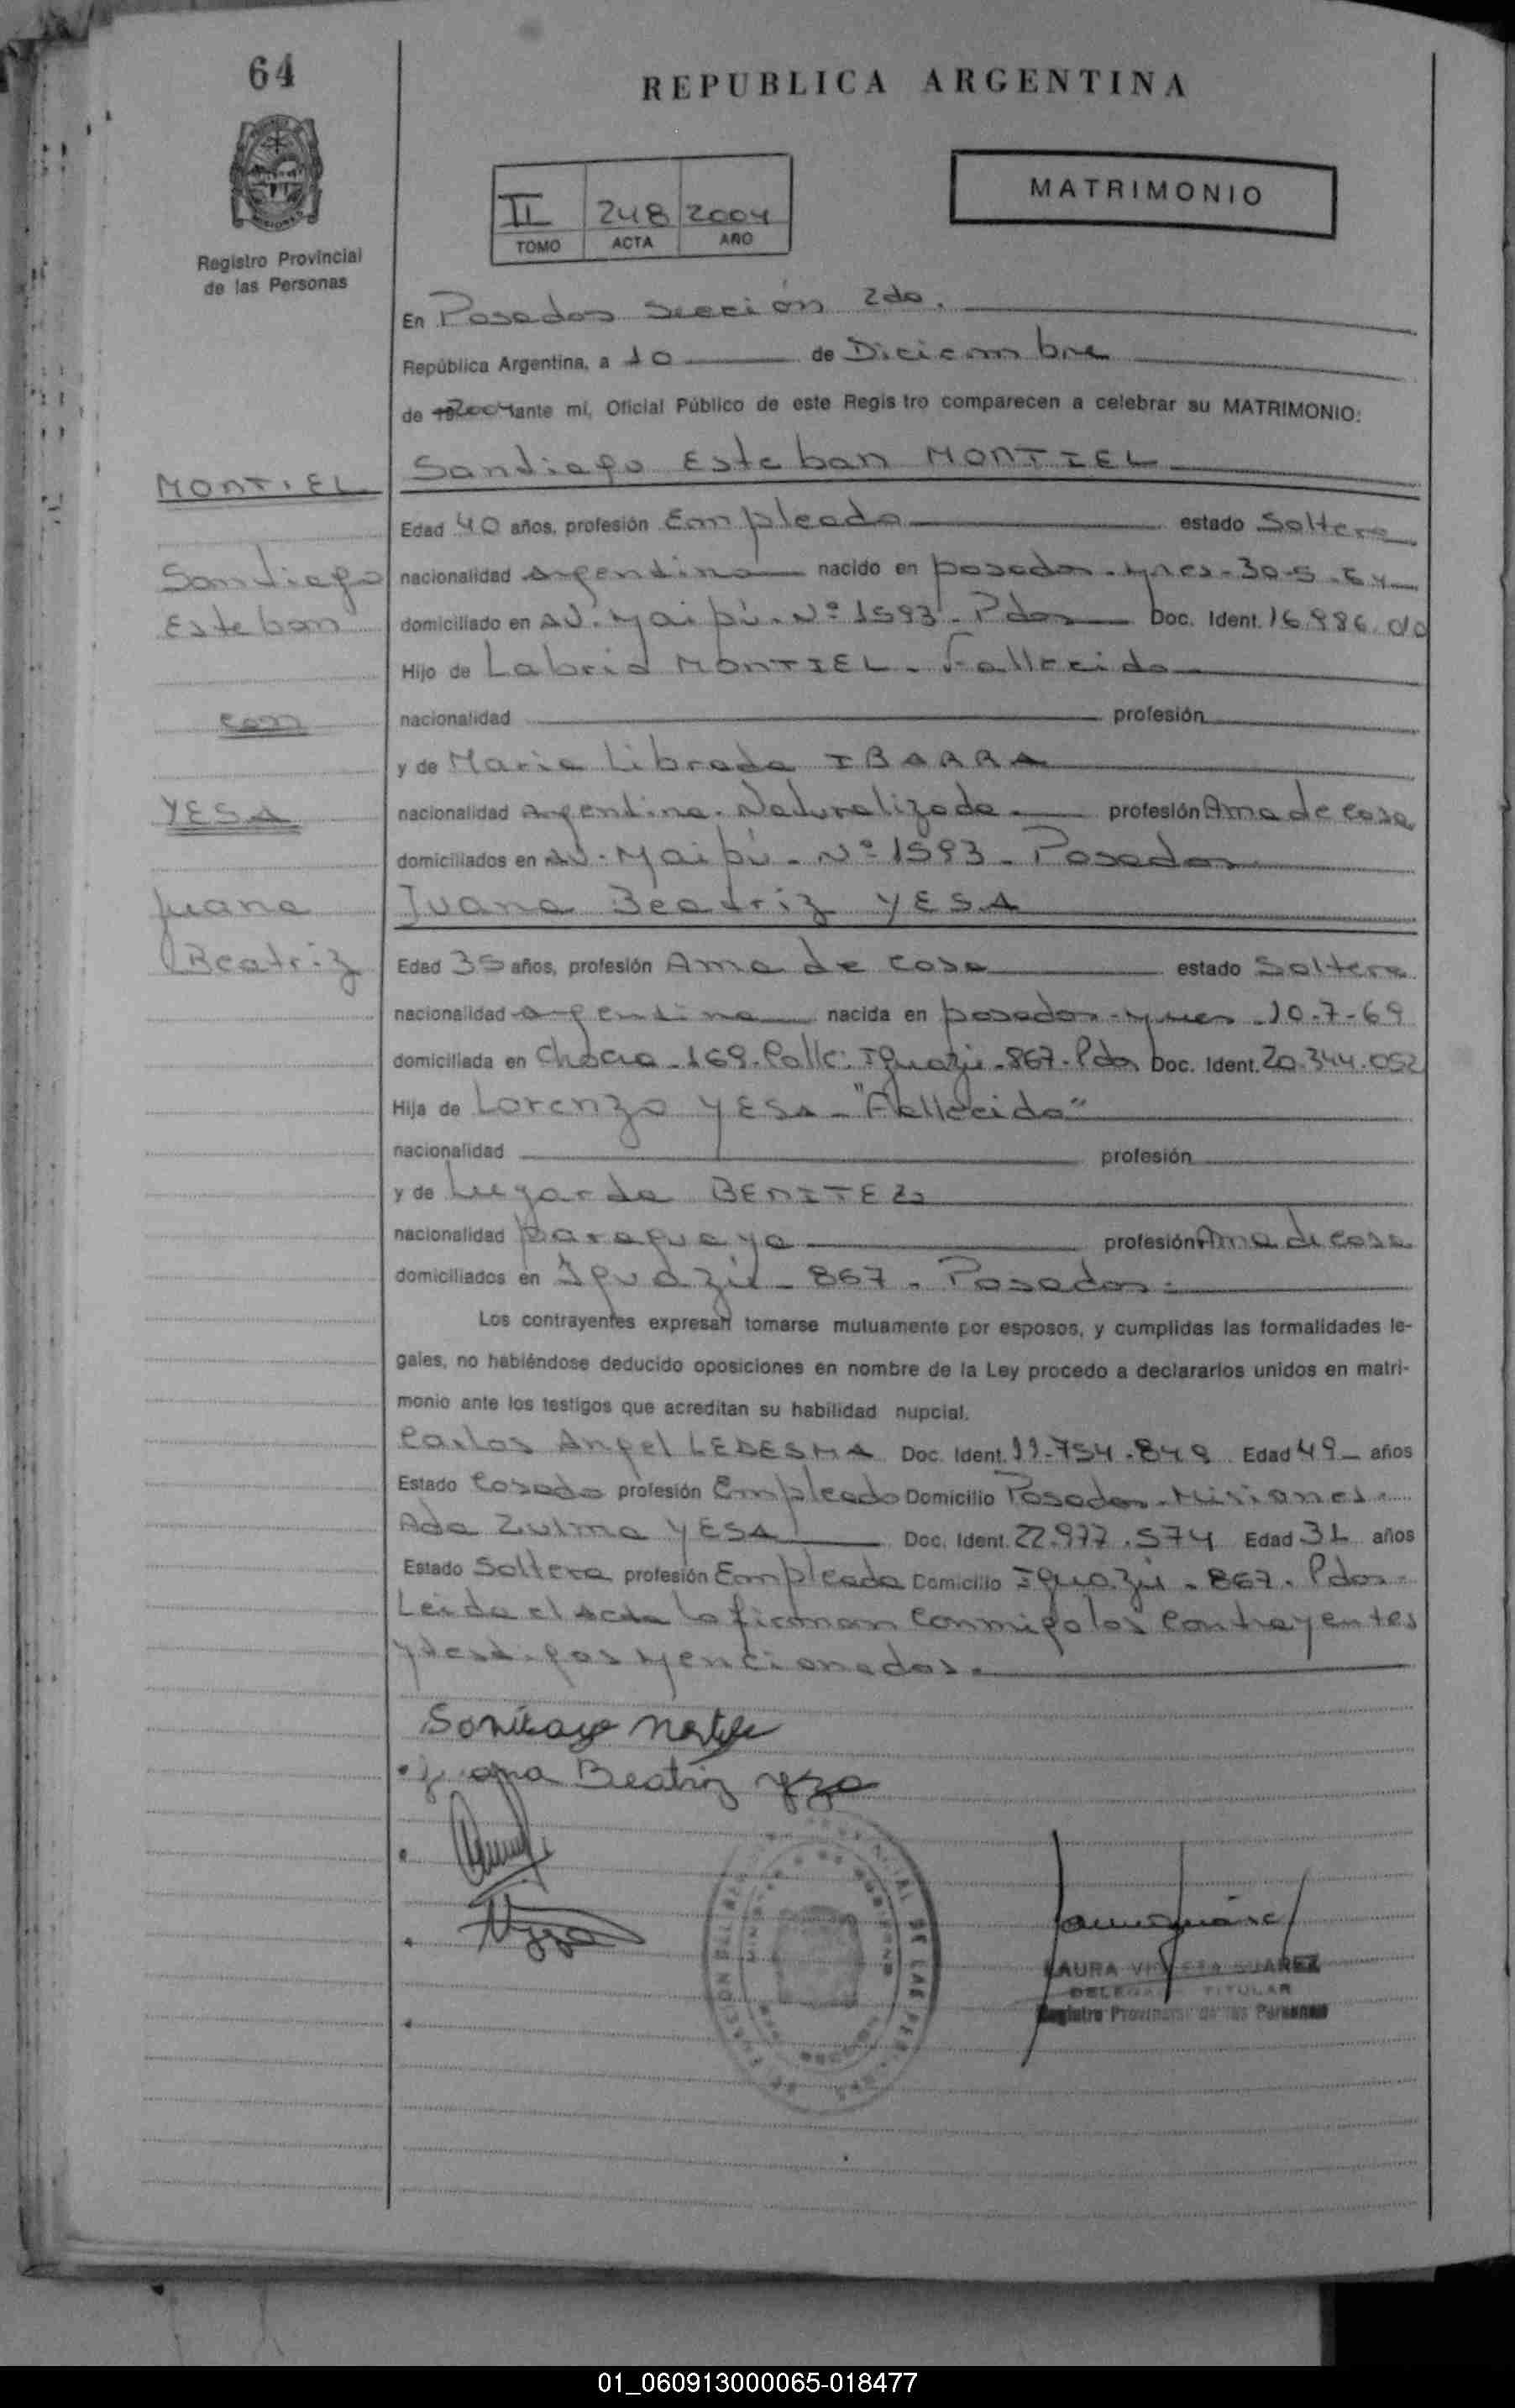 64
REPUBLICA ARGENTINA
Registro Provincial
de las Personas
II 248 2004
TOMO ACTA AÑO
MATRIMONIO
En Posadas Sección 2da.
República Argentina, a 10 de Diciembre
de 2004 ante mí, Oficial Público de este Registro comparecen a celebrar su MATRIMONIO:
MONTIEL
Santiago
Esteban
con
YESA
Juana
Beatriz
Santiago Esteban MONTIEL
Edad 40 años, profesión Empleado estado Soltero
nacionalidad Argentino nacido en posadas - Mnes - 30-5-64
domiciliado en AV. Maipú - Nº 1593 - Pdas Doc. Ident. 16.986.010
Hijo de MONTIEL - Fallecido
nacionalidad profesión
y de Maria Librada IBARRA
nacionalidad Argentina - Naturalizada - profesión Ama de casa
domiciliados en AV. Maipú - Nº 1593 - Posadas
Juana Beatriz YESA
Edad 35 años, profesión Ama de casa estado Soltera
nacionalidad argentina nacida en posadas - Mnes - 10-7-69
domiciliada en Chacra - 169 - Calle: Iguazú - 867 - Pdas Doc. Ident. 20.344.052
Hija de Lorenzo YESA - "Fallecido"
nacionalidad profesión
y de Lugarda BENITEZ
nacionalidad paraguaya profesión Ama de casa
domiciliados en Iguazú - 867 - Posadas -
Los contrayentes expresan tomarse mutuamente por esposos, y cumplidas las formalidades le-
gales, no habiéndose deducido oposiciones en nombre de la Ley procedo a declararlos unidos en matri-
monio ante los testigos que acreditan su habilidad nupcial.
Carlos Angel LEDESMA Doc. Ident. 11.754.849 Edad 49 años
Estado Casado profesión Empleado Domicilio Posadas - Misiones.
Ada Zulma YESA Doc. Ident. 22.977.574 Edad 31 años
Estado Soltera profesión Empleada Domicilio Iguazú - 867 - Pdas -
Leida el acta la firman conmigo los contrayentes
y testigos mencionados.
Juana Beatriz
LAURA SUAREZ
DELEGADA TITULAR
Registro Provincial de las Personas
01_060913000065-018477